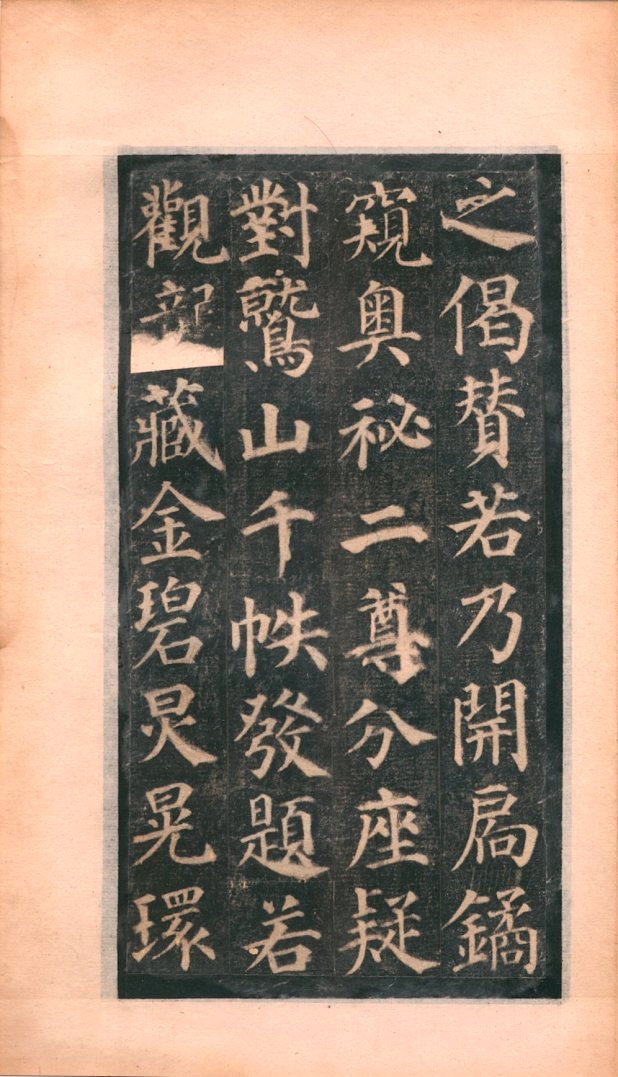 之偈賛若乃開扃鐍
窺奥祕二尊分座疑
對鷲山千帙發題若
觀藏金碧炅晃環